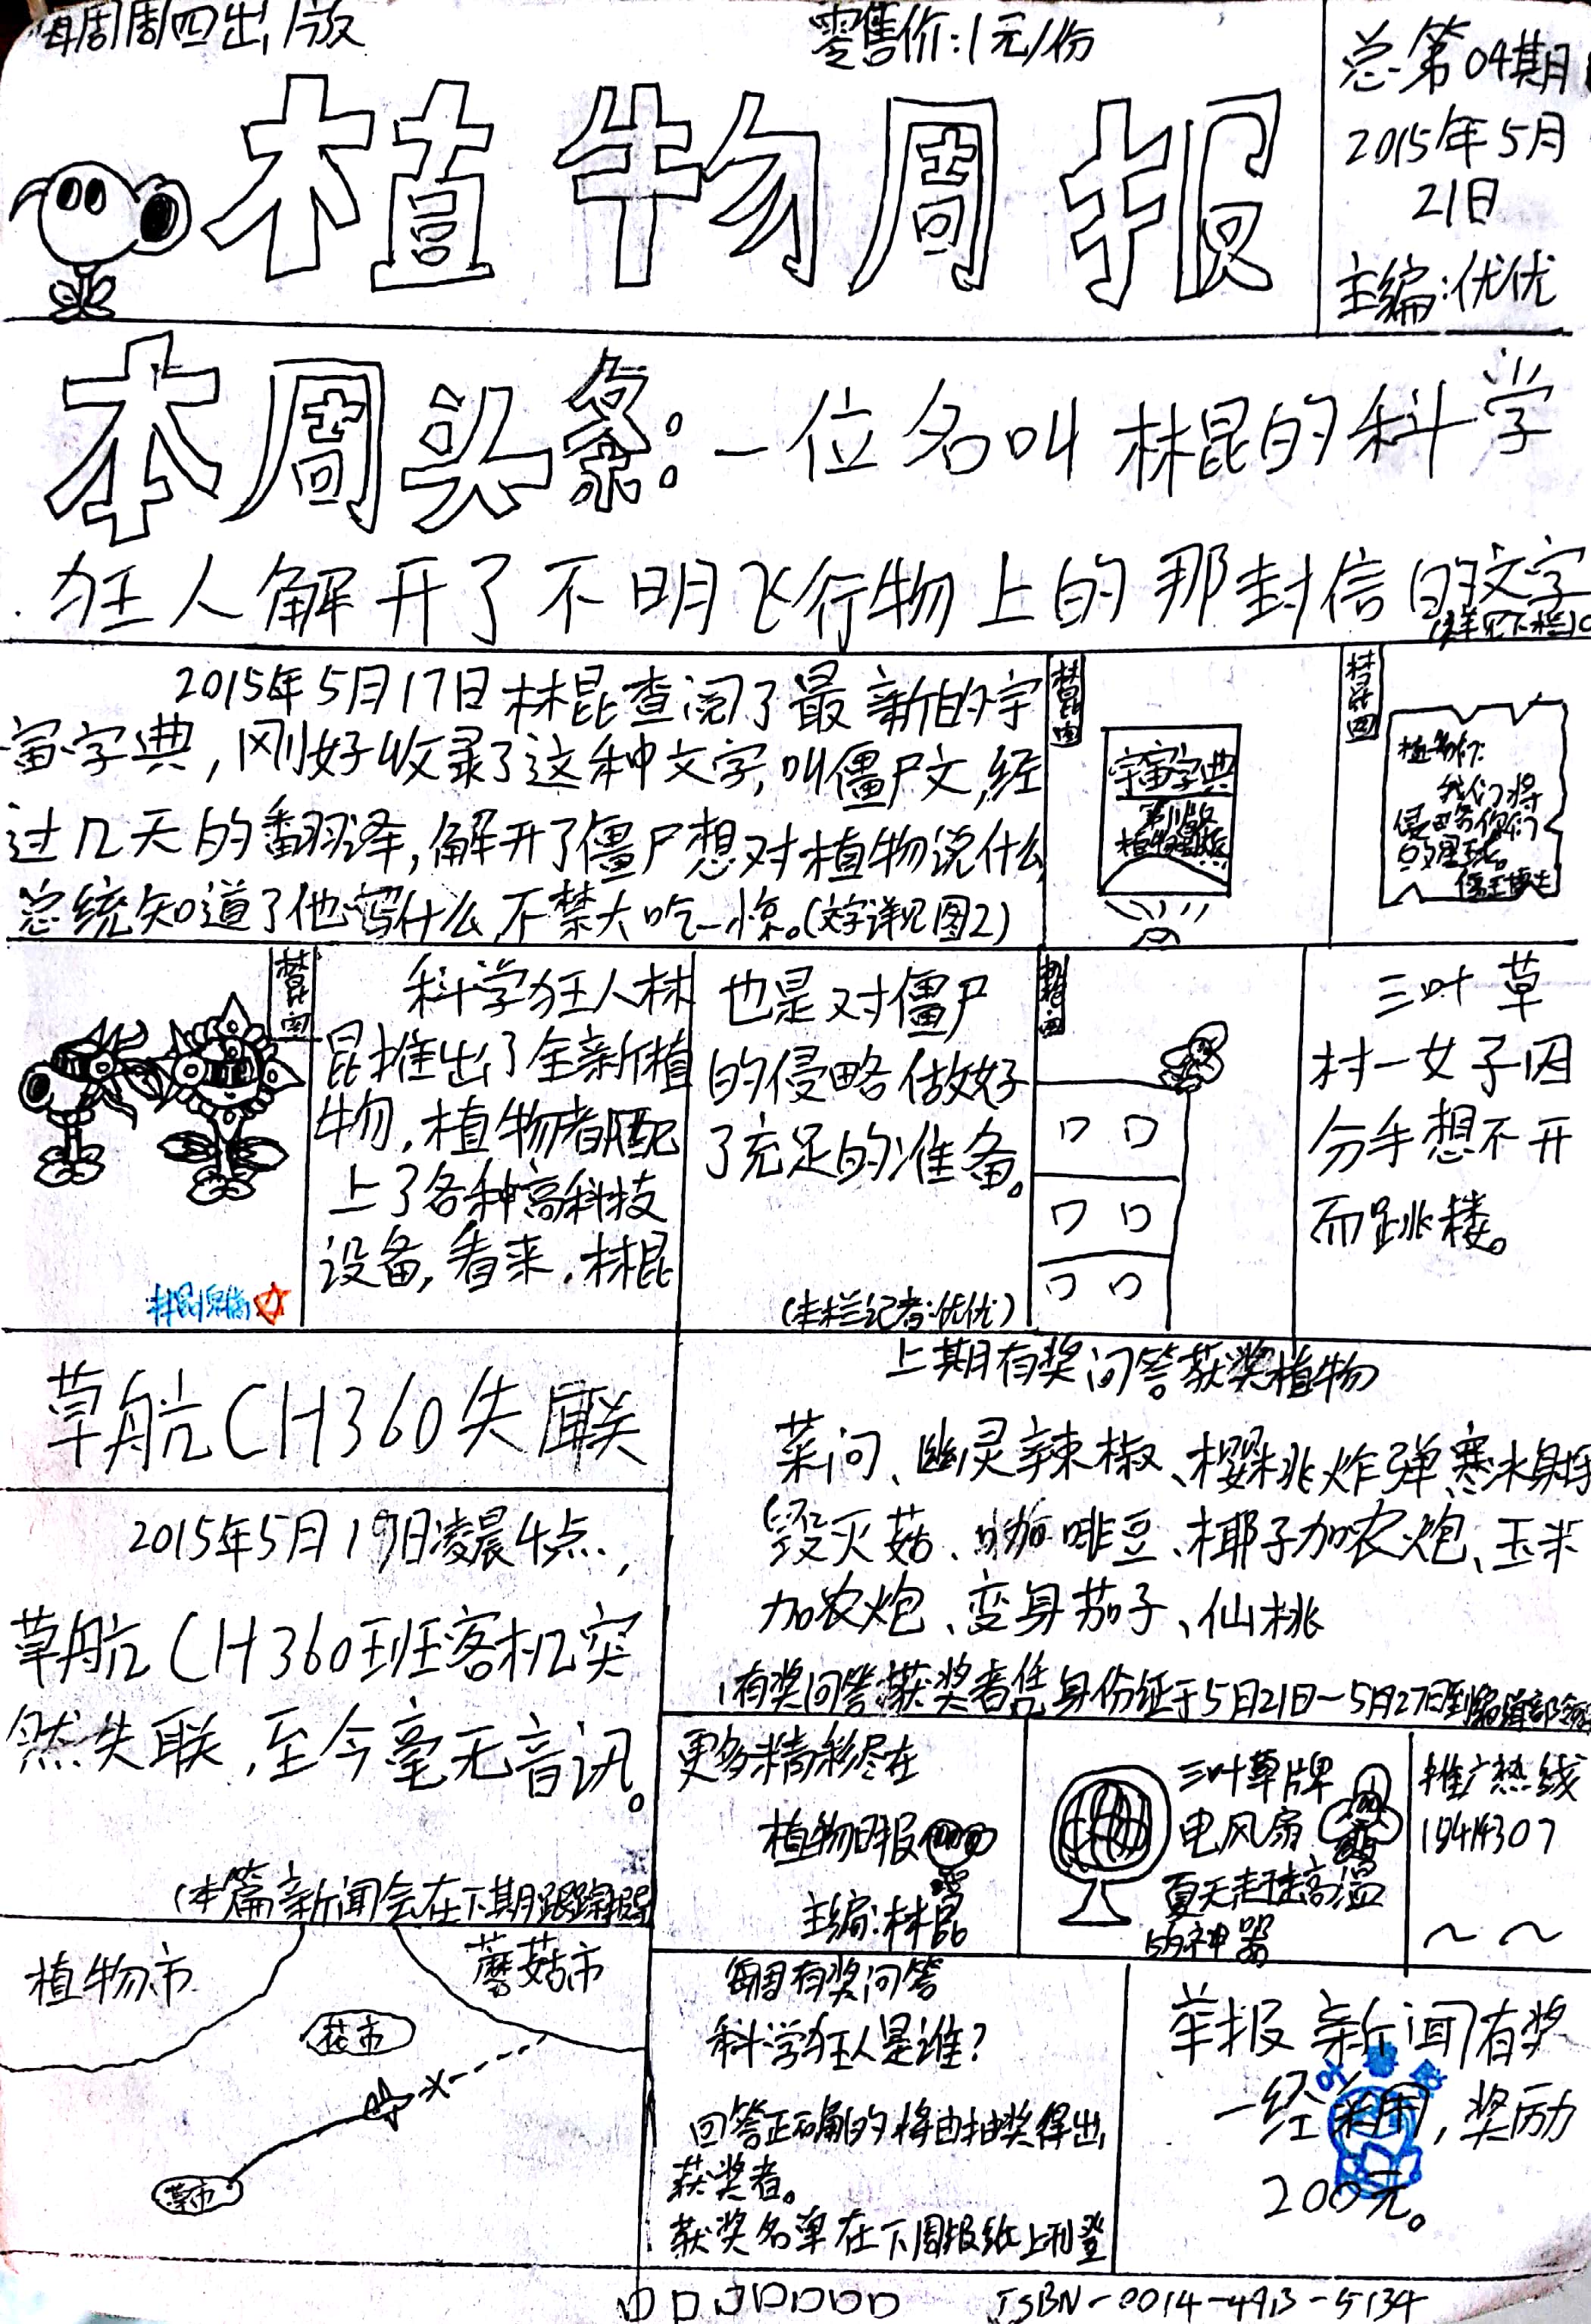 每周周四出版
零售价:1元/份
植物周报
总第04期
2015年5月
21日
主编:优优
本周头条:一位名叫林昆的科学
狂人解开了不明飞行物上的那封信的文字
(详见下栏)
2015年5月17日林昆查阅了最新的宇
宙字典,刚好收录了这种文字,叫僵尸文,经
过几天的翻译,解开了僵尸想对植物说什么,
总统知道了他写什么,不禁大吃一惊。(文字详见图2)
林昆图
宇宙字典
第11版
林昆图
植物们:
我们将
侵略你们
的星球。
僵王博士
林昆图
科学狂人林
昆推出了全新植
物,植物都配
上了各种高科技
设备,看来,林昆
也是对僵尸
的侵略做好
了充足的准备。
(本栏记者:优优)
三叶草
村一女子因
分手想不开
而跳楼。
草航CH360失联
2015年5月19日凌晨4点,
草航CH360班客机突
然失联,至今毫无音讯。
(本篇新闻会在下期跟踪报导
植物市
蘑菇市
花市
草市
上期有奖问答获奖植物
菜问、幽灵辣椒、樱桃炸弹寒冰射手
毁灭菇、咖啡豆、椰子加农炮、玉米
加农炮、变身茄子、仙桃
(有奖问答获奖者凭身份证于5月21日-5月27日到
更多精彩尽在
植物日报
主编:林昆
三叶草牌
电风扇
夏天赶走高温
的神器
推广热线
每周有奖问答
科学狂人是谁?
回答正确的将由抽奖得出
获奖者。
获奖名单在下周报纸上刊登
举报新闻有奖
一经采用,奖励
200元。
ISBN-0014-4913-5134